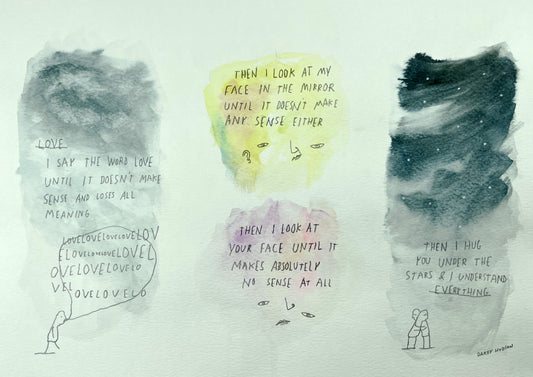 LOVE
I SAY THE WORD LOVE
UNTIL IT DOESN'T MAKE
SENSE AND LOSES ALL
MEANING
LOVELOVELOVELOVELOV
ELOVELOVELOVELOVEL
OVELOVELOVELO
VEL
OVELOVELO
THEN I LOOK AT MY
FACE IN THE MIRROR
UNTIL IT DOESN'T MAKE
ANY SENSE EITHER
THEN I LOOK AT
YOUR FACE UNTIL IT
MAKES ABSOLUTELY
NO SENSE AT ALL
THEN I HUG
YOU UNDER THE
STARS & I UNDERSTAND
EVERYTHING